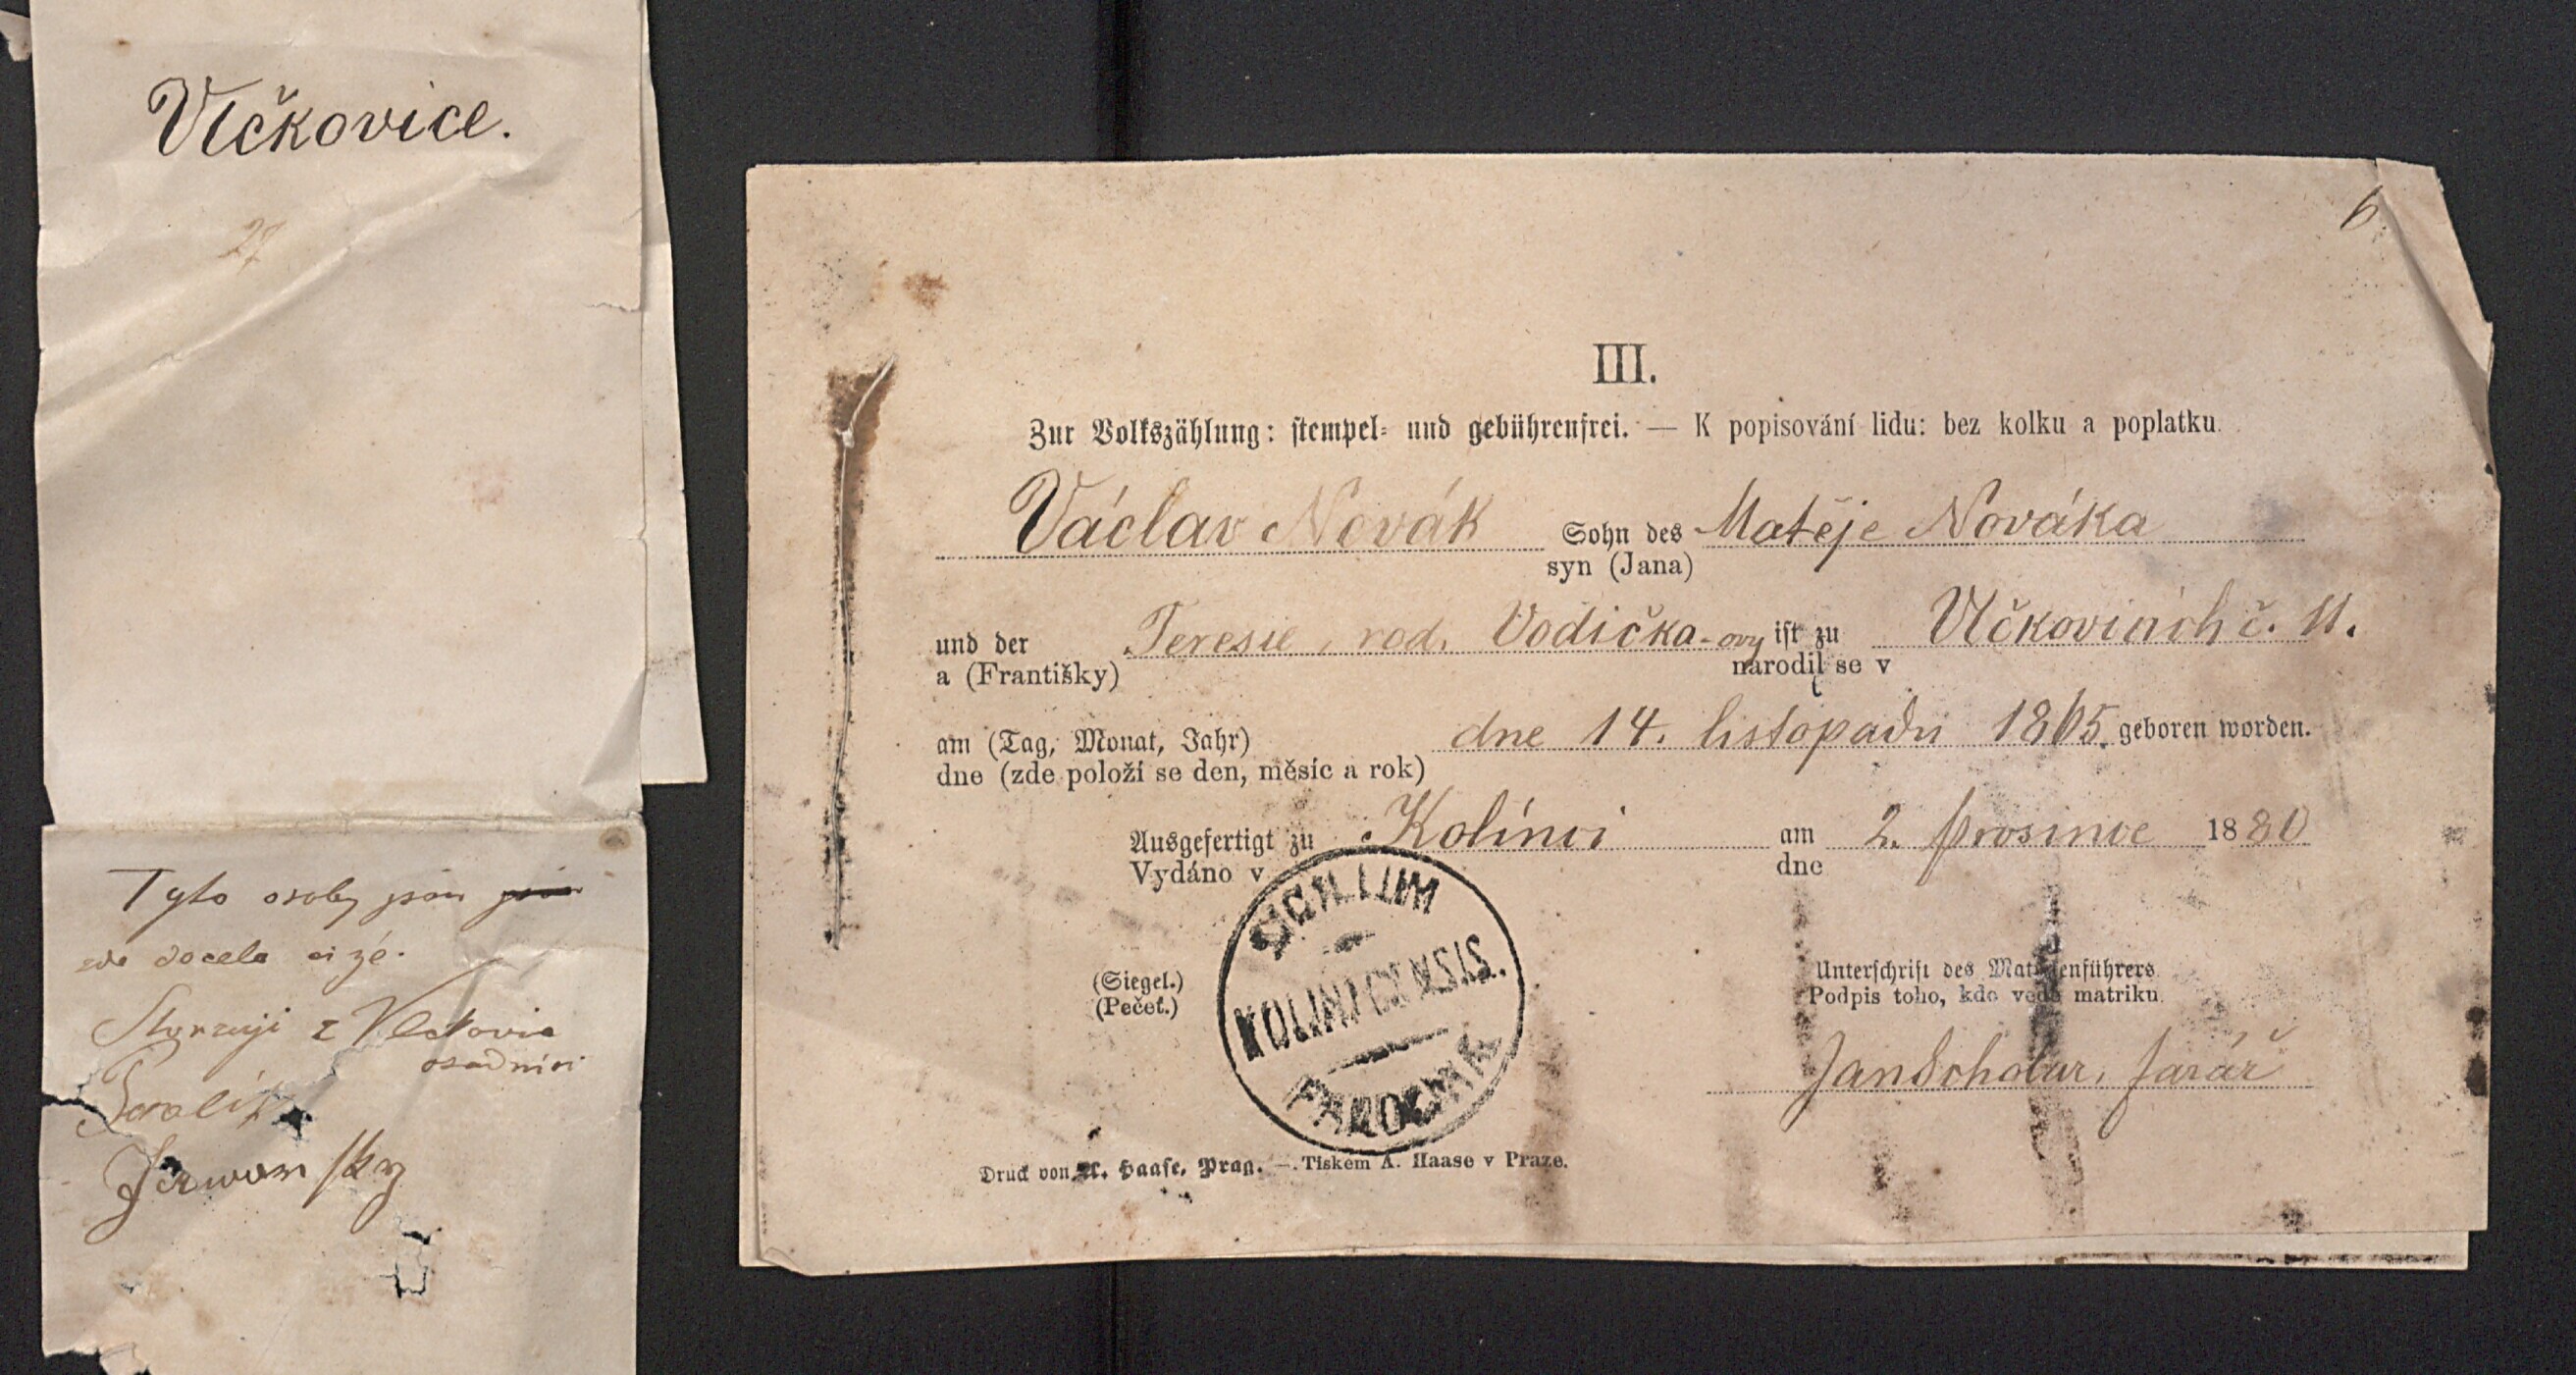 Vlčkovice.
27
Tyto osoby jsou jsou
zde docela cizé.
z
osadníci
6
III.
Zur Volkszählung: stempel- und gebührenfrei. — K popisování lidu: bez kolku a poplatku.
Václav Novák Sohn des Matěje Nováka
syn (Jana)
und der Teresie, rod. Vodička-ovy ist zu Vlčkovicích č. 11.
a (Františky) narodil se v
am (Tag, Monat, Jahr) dne 14. listopadu 1865. geboren worden.
dne (zde položí se den, měsíc a rok)
Ausgefertigt zu Kolínci am 2. prosince 1880
Vydáno v dne
SIGILLUM
KOLINECENSIS.
PAROCHIÆ
(Siegel.)
(Pečeť.)
Unterschrift des Matrikenführers
Podpis toho, kdo vede matriku.
Jan farář
Druck von A. Haase, Prag. — Tiskem A. Haase v Praze.